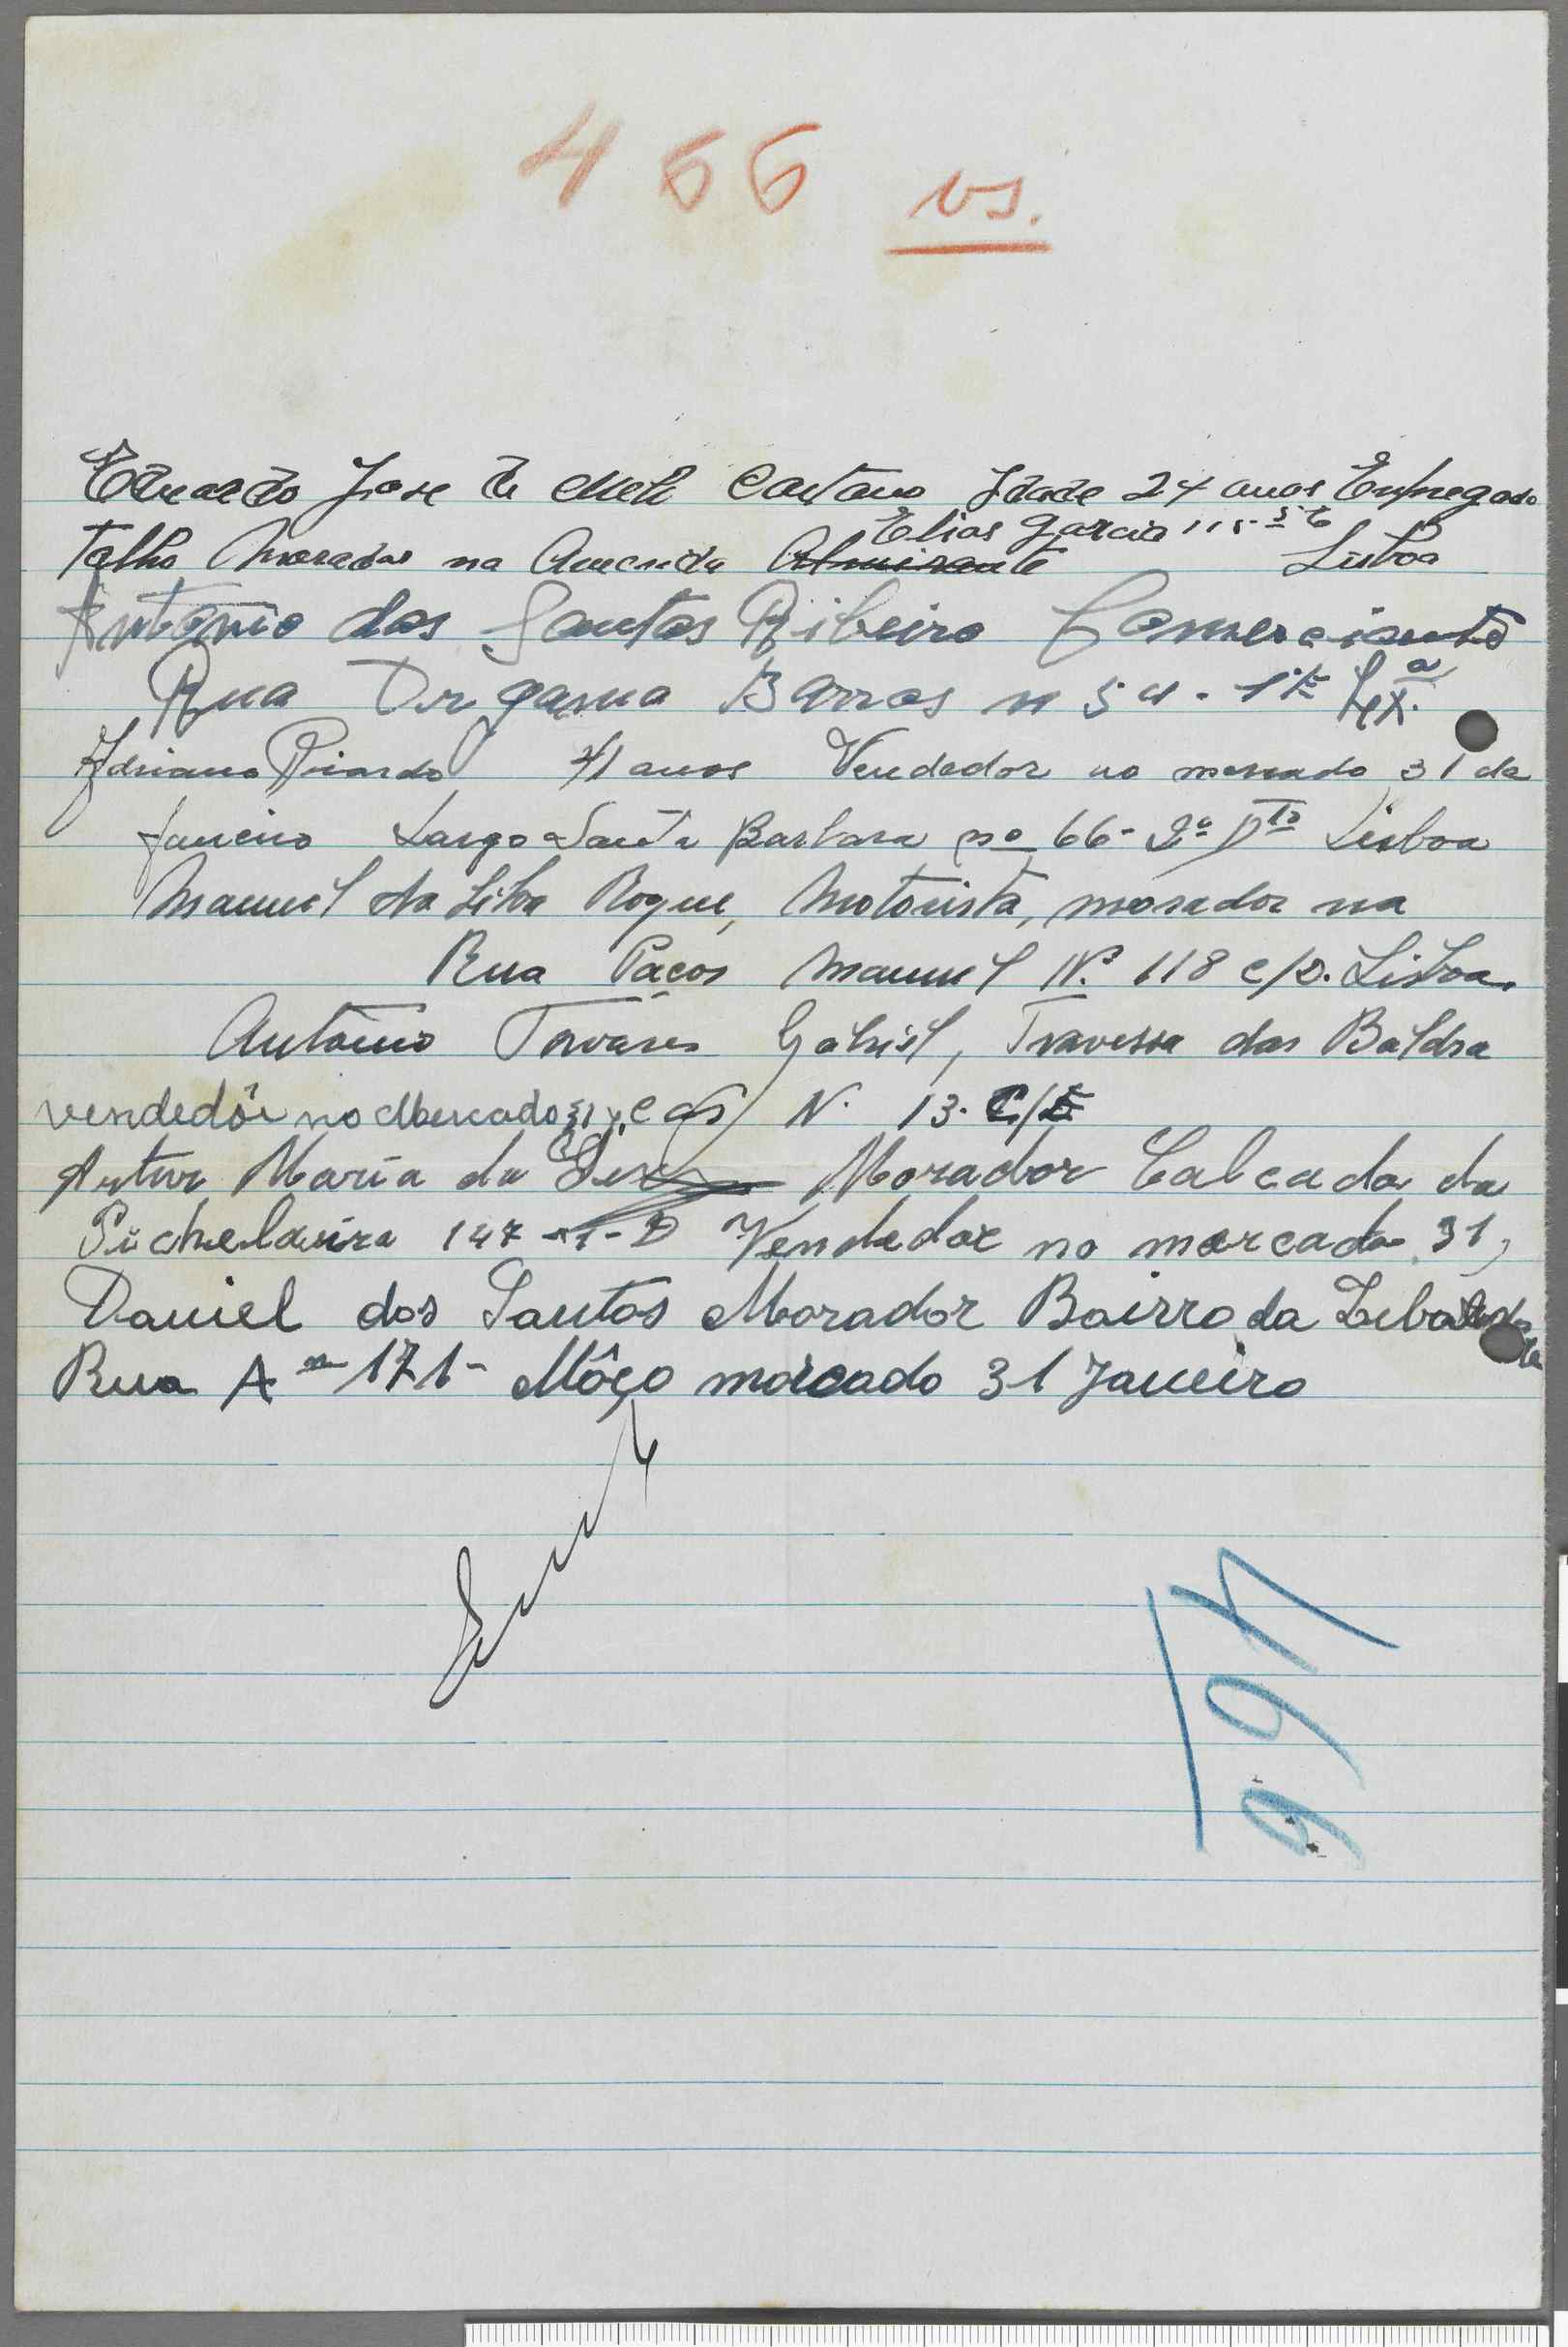 466 vs.
Eduardo Jose de Melo Caetano Idade 24 anos Empregado
Elias Garcia 115-
Talho Morador na Avenida Almirante Lisboa
António dos Santos Ribeiro Comerciante
Rua Dr gama Barros nº 54-1º E Lxª
Adriano Ricardo 41 anos Vendedor no mercado 31 de
Janeiro Largo Santa Barbara nº 66-2º Dto Lisboa
Manuel da Silva Roque, Motorista, morador na
Rua Paços Manuel Nº 118 c/v. Lisboa.
António Tavares Gabriel, Travessa das Baldra
vendedôr no Mercado 31 cas N. 13.
Artur Maria da Morador Calcada da
Picheleira 147-1-D Vendedor no mercado 31,
Daniel dos Santos Morador Bairro da
Rua A nº 171- Môço mercado 31 Janeiro
466